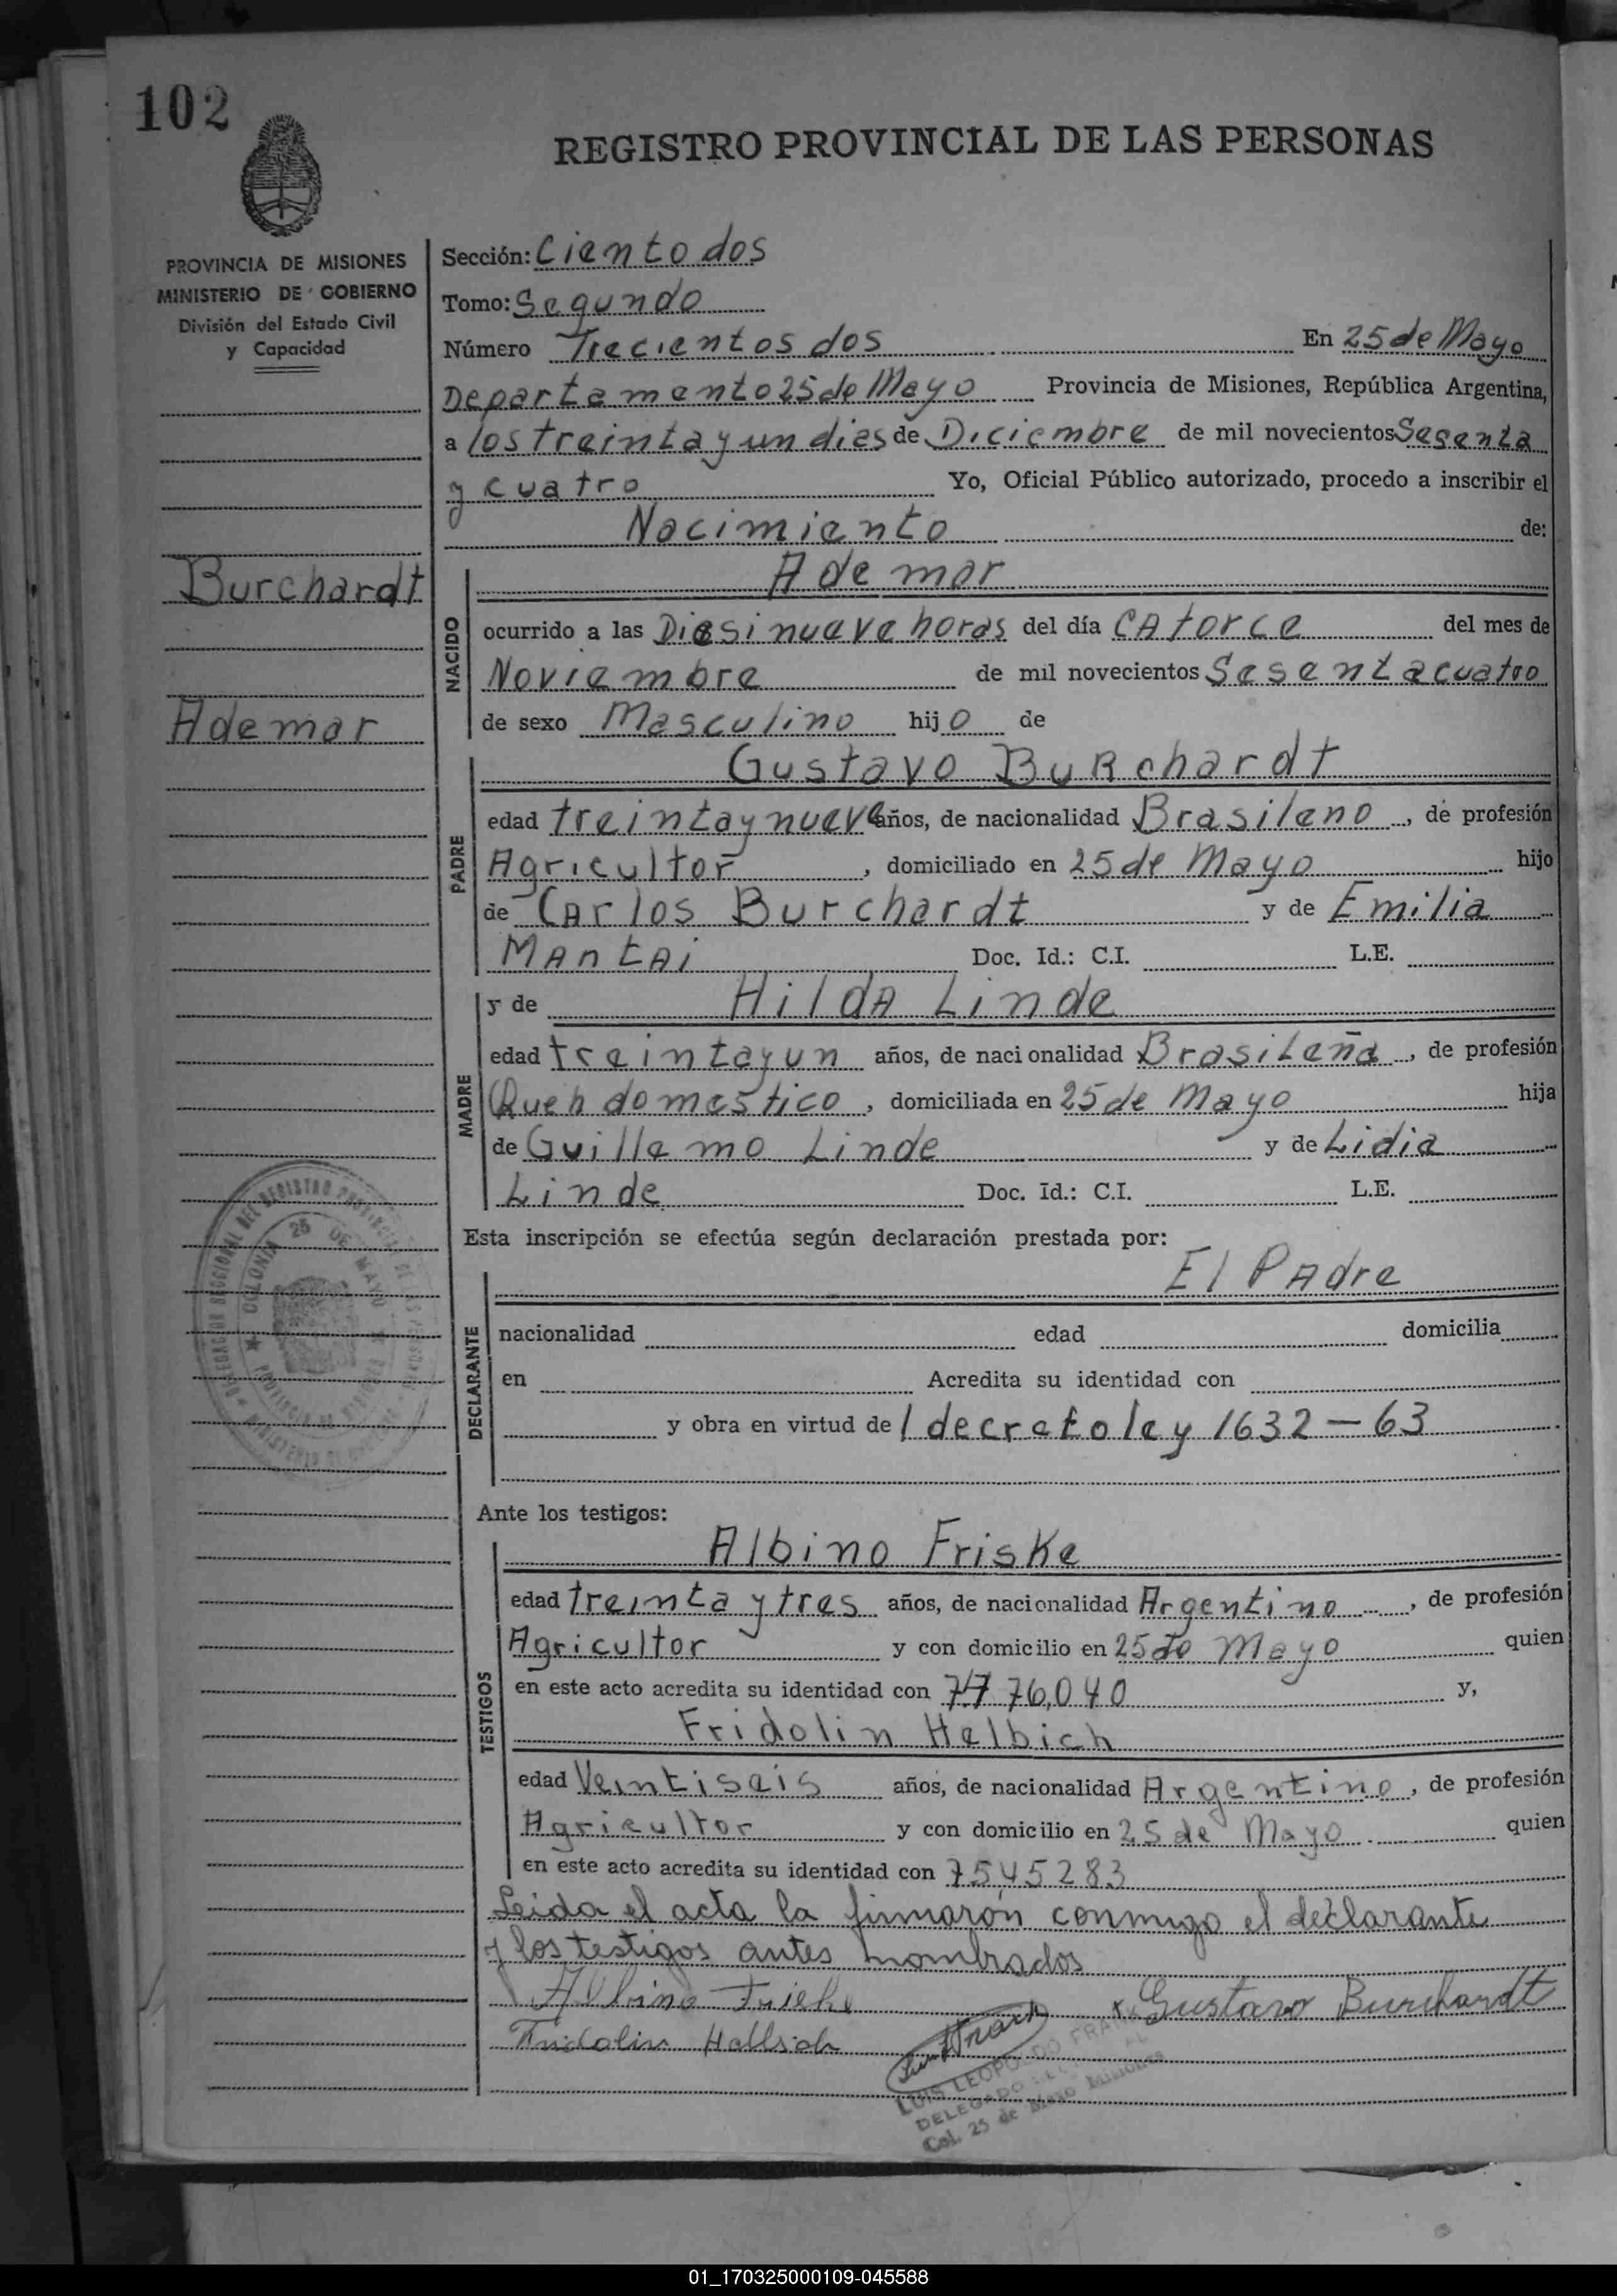 102
REGISTRO PROVINCIAL DE LAS PERSONAS
PROVINCIA DE MISIONES
MINISTERIO DE GOBIERNO
División del Estado Civil
y Capacidad
Burchardt
Ademar
Sección: Ciento dos
Tomo: Segundo
Número Trecientos dos En 25 de Mayo
Departamento 25 de Mayo Provincia de Misiones, República Argentina,
a los treinta y un dies de Diciembre de mil novecientos Sesenta
y cuatro Yo, Oficial Público autorizado, procedo a inscribir el
Nacimiento de:
Ademar
NACIDO
ocurrido a las Diesinueve horas del día CAtorce del mes de
Noviembre de mil novecientos Sesenta cuatro
de sexo Masculino hijo de
Gustavo Burchardt
PADRE
edad treinta y nueve años, de nacionalidad Brasileno, de profesión
Agricultor, domiciliado en 25 de Mayo hijo
de CArlos Burchardt y de Emilia
MAntAi Doc. Id.: C.I. L.E.
y de HildA Linde
MADRE
edad treinta y un años, de nacionalidad Brasileña, de profesión
Queh domestico, domiciliada en 25 de Mayo hija
de Guillemo Linde y de Lidia
Linde Doc. Id.: C.I. L.E.
Esta inscripción se efectúa según declaración prestada por:
El PAdre
DECLARANTE
nacionalidad edad domicilia
en Acredita su identidad con
y obra en virtud de l decreto ley 1632-63
Ante los testigos:
Albino Friske
TESTIGOS
edad treinta y tres años, de nacionalidad Argentino, de profesión
Agricultor y con domicilio en 25 de Mayo quien
en este acto acredita su identidad con 76,040 y,
Fridolin Helbich
edad Veintiseis años, de nacionalidad Argentino, de profesión
Agricultor y con domicilio en 25 de Mayo quien
en este acto acredita su identidad con 7545283
Leida el acta la firmarón conmigo el declarante
y los testigos antes nombrados
Albino Friske Gustavo Burchardt
Fridolin Helbich
LUIS LEOPOLDO
DELEGADO
Col. 25 de Mayo Misiones
COLONIA 25 DE MAYO
01_170325000109-045588